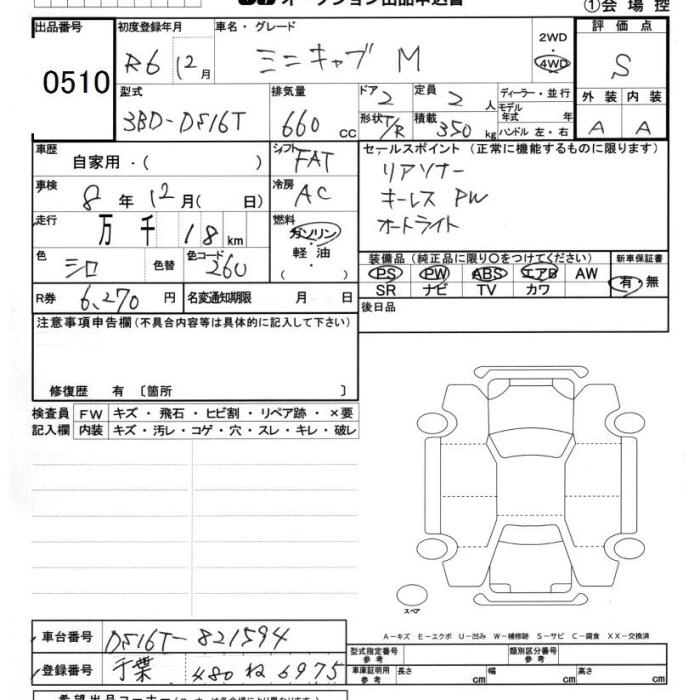 ①会場控
出品番号 初度登録年月 車名・グレード 評価点
0510 R6 12月 ミニキャブ M 2WD ・ 4WD S
型式 排気量 ドア 2 定員 2 人 ディーラー・並行 外装 内装
3BD-DS16T 660 cc 形状 T/R 積載 350 kg モデル年式 年 ハンドル 左・右 A A
車歴 自家用・( ) シフト FAT セールスポイント (正常に機能するものに限ります)
車検 8年12月( 日) 冷房 AC リアソナー
キーレス PW
走行 万 千 18 km 燃料 ガソリン・軽油 ( ) オートライト
色 シロ 色替 色コード 260 装備品 (純正品に限り○をつけてください) 新車保証書
PS PW ABS エアB AW 有・無
SR ナビ TV カワ
R券 6,270 円 名変通知期限 月 日 後日品
注意事項申告欄 (不具合内容等は具体的に記入して下さい)
修復歴 有 〔箇所 〕
検査員 FW キズ・飛石・ヒビ割・リペア跡・×要
記入欄 内装 キズ・汚レ・コゲ・穴・スレ・キレ・破レ
スペア
A−キズ E−エクボ U−凹み W−補修跡 S−サビ C−腐食 XX−交換済
車台番号 DS16T-821594 型式指定番号 参考 類別区分番号 参考
登録番号 千葉 480 ね 6975 車庫証明用 参考 長さ cm 幅 cm 高さ cm